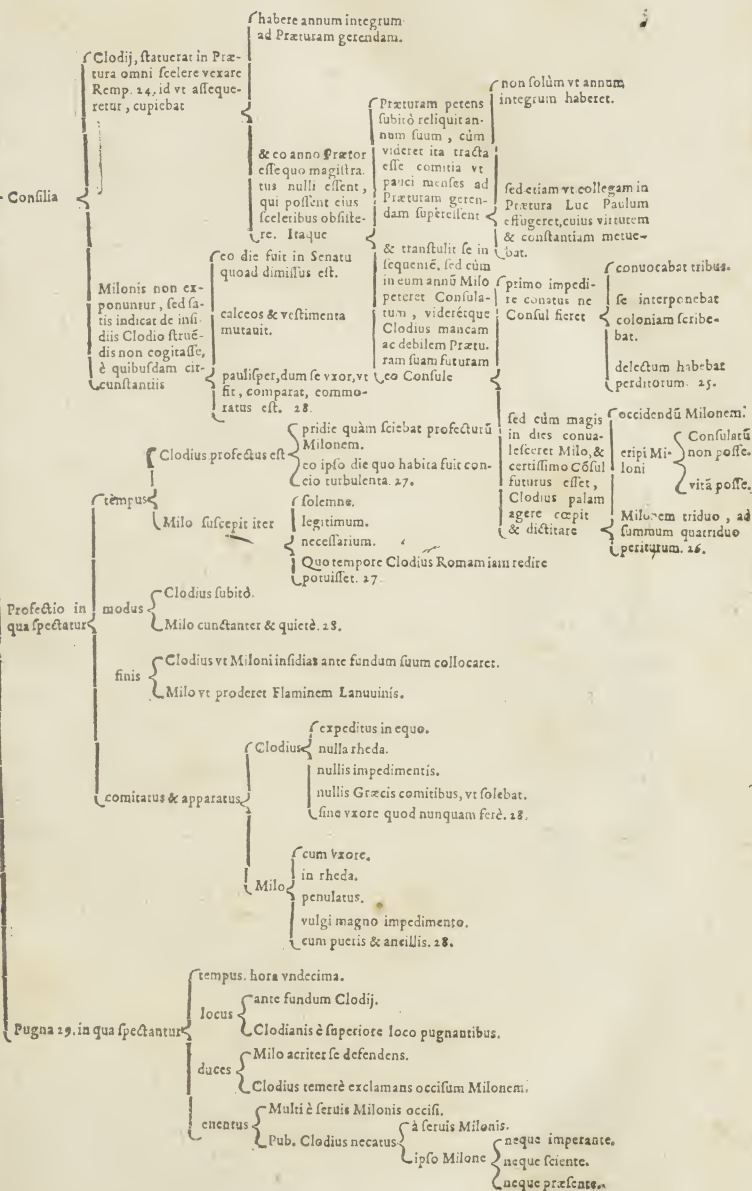 habere annum integrum
ad Præturam gerendam.
Clodij, ſtatuerat in Præ-
tura omni ſcelere vexare
Remp. 24, id vt aſſeque-
retur, cupiebat
& eo anno Prætor
eſſe quo magiſtra.
tus nulli eſſent,
qui poſſent eius
ſceleribus obſiſte-
re. Itaque
Præturam petens
ſubitò reliquit an-
num ſuum, cùm
videret ita tracta
eſſe comitia vt
pauci menſes ad
Præturam geren-
dam ſupereſſent
non ſolùm vt annum
integrum haberet.
ſed etiam vt collegam in
Prætura Luc Paulum
effugeret, cuius virtutem
& conſtantiam metue-
bat.
& tranſtulit ſe in
ſequentē, ſed cùm
in eum annū Milo
peteret Conſula-
tum, viderétque
Clodius mancam
ac debilem Prætu.
ram ſuam futuram
eo Conſule
primo impedi-
re conatus ne
Conſul fieret
conuocabat tribus.
ſe interponebat
coloniam ſcribe-
bat.
delectum habebat
perditorum. 25.
ſed cùm magis
in dies conua-
leſceret Milo, &
certiſſimo Cōſul
futurus eſſet,
Clodius palam
agere cœpit
& dictitare
occidendū Milonem.
eripi Mi-
loni
Conſulatū
non poſſe.
vitā poſſe.
Milonem triduo, ad
ſummum quatriduo
periturum. 26.
Conſilia
Milonis non ex-
ponuntur, ſed ſa-
tis indicat de inſi-
diis Clodio ſtruē-
dis non cogitaſſe,
è quibuſdam cir-
cunſtantiis
eo die fuit in Senatu
quoad dimiſſus eſt.
calceos & veſtimenta
mutauit.
pauliſper, dum ſe vxor, vt
fit, comparat, commo-
ratus eſt. 28.
Profectio in
qua ſpectatur
tempus
Clodius profectus eſt
pridie quàm ſciebat profecturū
Milonem.
eo ipſo die quo habita fuit con-
cio turbulenta. 27.
Milo ſuſcepit iter
ſolemne.
legitimum.
neceſſarium.
Quo tempore Clodius Romam iam redire
potuiſſet. 27
modus
Clodius ſubitò.
Milo cunctanter & quietè. 28.
finis
Clodius vt Miloni inſidias ante fundum ſuum collocaret.
Milo vt proderet Flaminem Lanuuinis.
comitatus & apparatus
Clodius
expeditus in equo.
nulla rheda.
nullis impedimentis.
nullis Græcis comitibus, vt ſolebat.
ſine vxore quod nunquam ferè. 28.
Milo
cum vxore.
in rheda.
penulatus.
vulgi magno impedimento.
cum pueris & ancillis. 28.
Pugna 29. in qua ſpectantur
tempus. hora vndecima.
locus
ante fundum Clodij.
Clodianis è ſuperiore loco pugnantibus.
duces
Milo acriter ſe defendens.
Clodius temerè exclamans occiſum Milonem.
euentus
Multi è ſeruis Milonis occiſi.
Pub. Clodius necatus
à ſeruis Milonis.
ipſo Milone
neque imperante.
neque ſciente.
neque præſente.